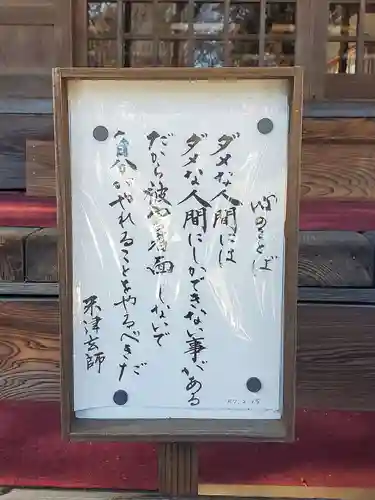 心のことば
ダメな人間には
ダメな人間にしかできない事がある
だから被害者面しないで
自分がやれることをやるべきだ
米津玄師